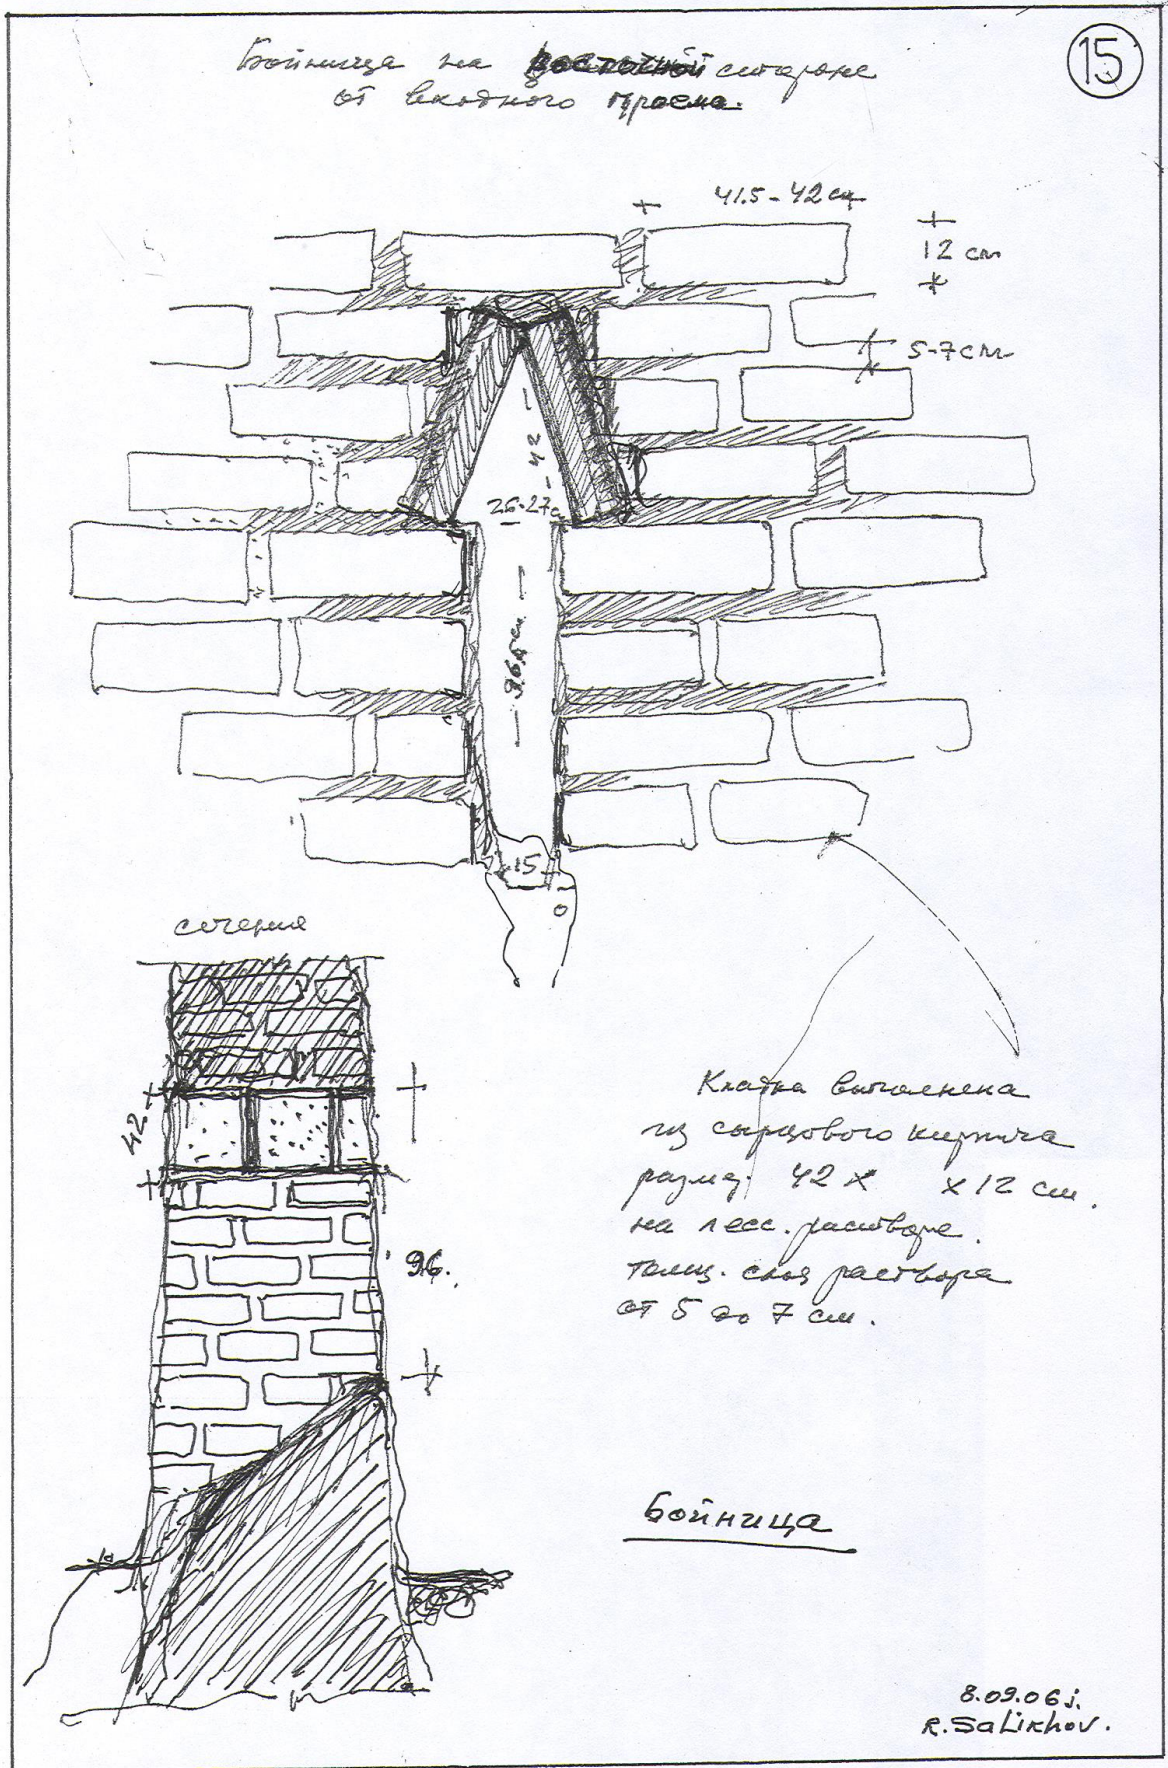 15
Бойница на восточной стороне
от входного проема.
41.5-42 см
12 см
5-7 см
42
26-27с
96 см
15
сечения
42
96.
Кладка выполнена
из сырцового кирпича
разме. 42 х х 12 см.
на лесс. растворе.
толщ. слоя раствора
от 5 до 7 см.
Бойница
8.09.06 j.
R. Salikhov.